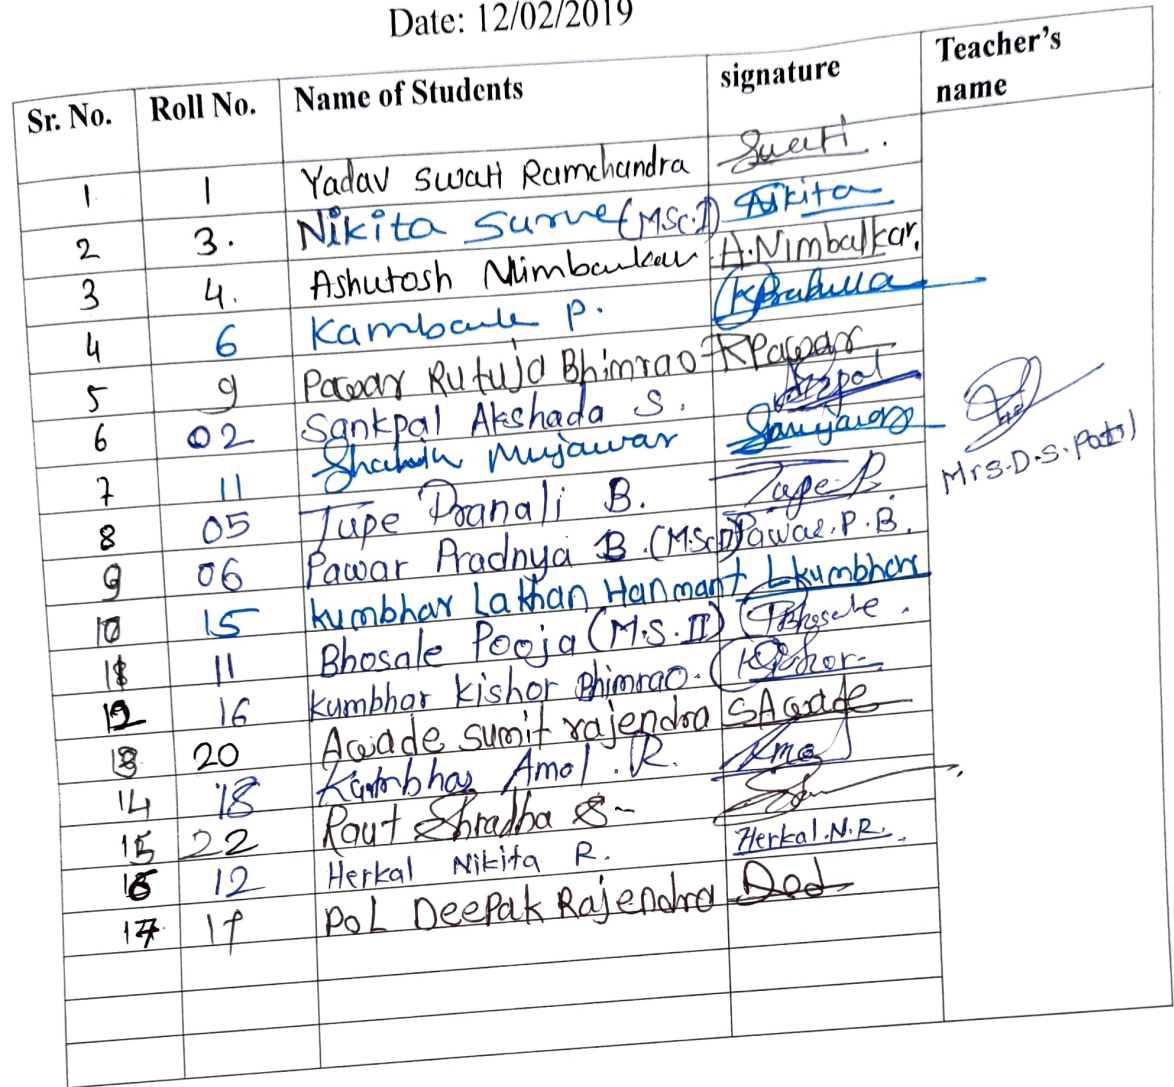 Date: 12/02/2019
Sr. No. Roll No. Name of Students signature Teacher's name
1 1 Yadav Swati Ramchandra Swati.
2 3. Nikita Surve (MSc.I) Nikita
3 4. Ashutosh Nimbalkar A.Nimbalkar.
4 6 Kamble P. KPrafulla
5 9 Pawar Rutuja Bhimrao RPawar
6 02 Sankpal Akshada S.
7 11 Shahin Mujawar
8 05 Tupe Pranali B. Tupe P.
9 06 Pawar Pradnya B.(MSc.I) Pawar.P.B.
10 15 kumbhar Lakhan Hanmant Lkumbhar
11 11 Bhosale Pooja (M.S.II) PBhosale.
12 16 kumbhar kishor Bhimrao. Kishor
13 20 Awade sumit rajendra SAwade
14 18 Kumbhar Amol.R. Amol
15 22 Raut Shradha S-
16 12 Herkal Nikita R. Herkal.N.R.
17 17 Pol Deepak Rajendra
Mrs.D.S.Patil